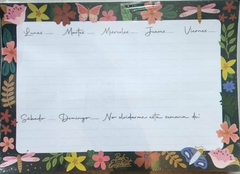 Lunes.... Martes.... Miércoles.... Jueves.... Viernes....
Sábado.... Domingo.... No olvidarme esta semana de: